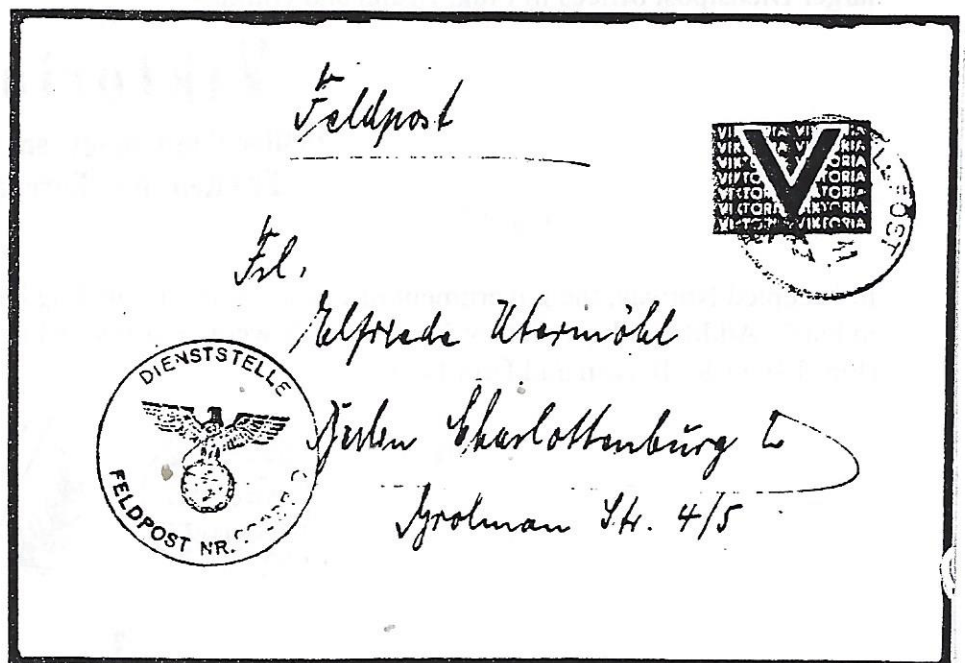 Feldpost
VIKTORIA VIKTORIA
VIKTORIA VIKTORIA
VIKTORIA VIKTORIA
VIKTORIA VIKTORIA
VIKTORIA VIKTORIA
VIKTORIA VIKTORIA
V
POST
Frl.
Elfriede Utermöhl
Berlin Charlottenburg 2
Grolman Str. 4/5
DIENSTSTELLE
FELDPOST NR.